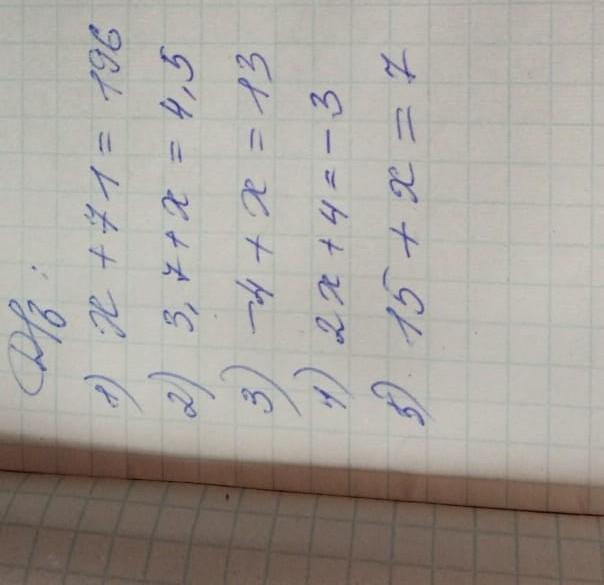 Д/з:
1) x + 71 = 196
2) 3,7 + x = 4,5
3) -4 + x = 13
4) 2x + 4 = -3
5) 15 + x = 7